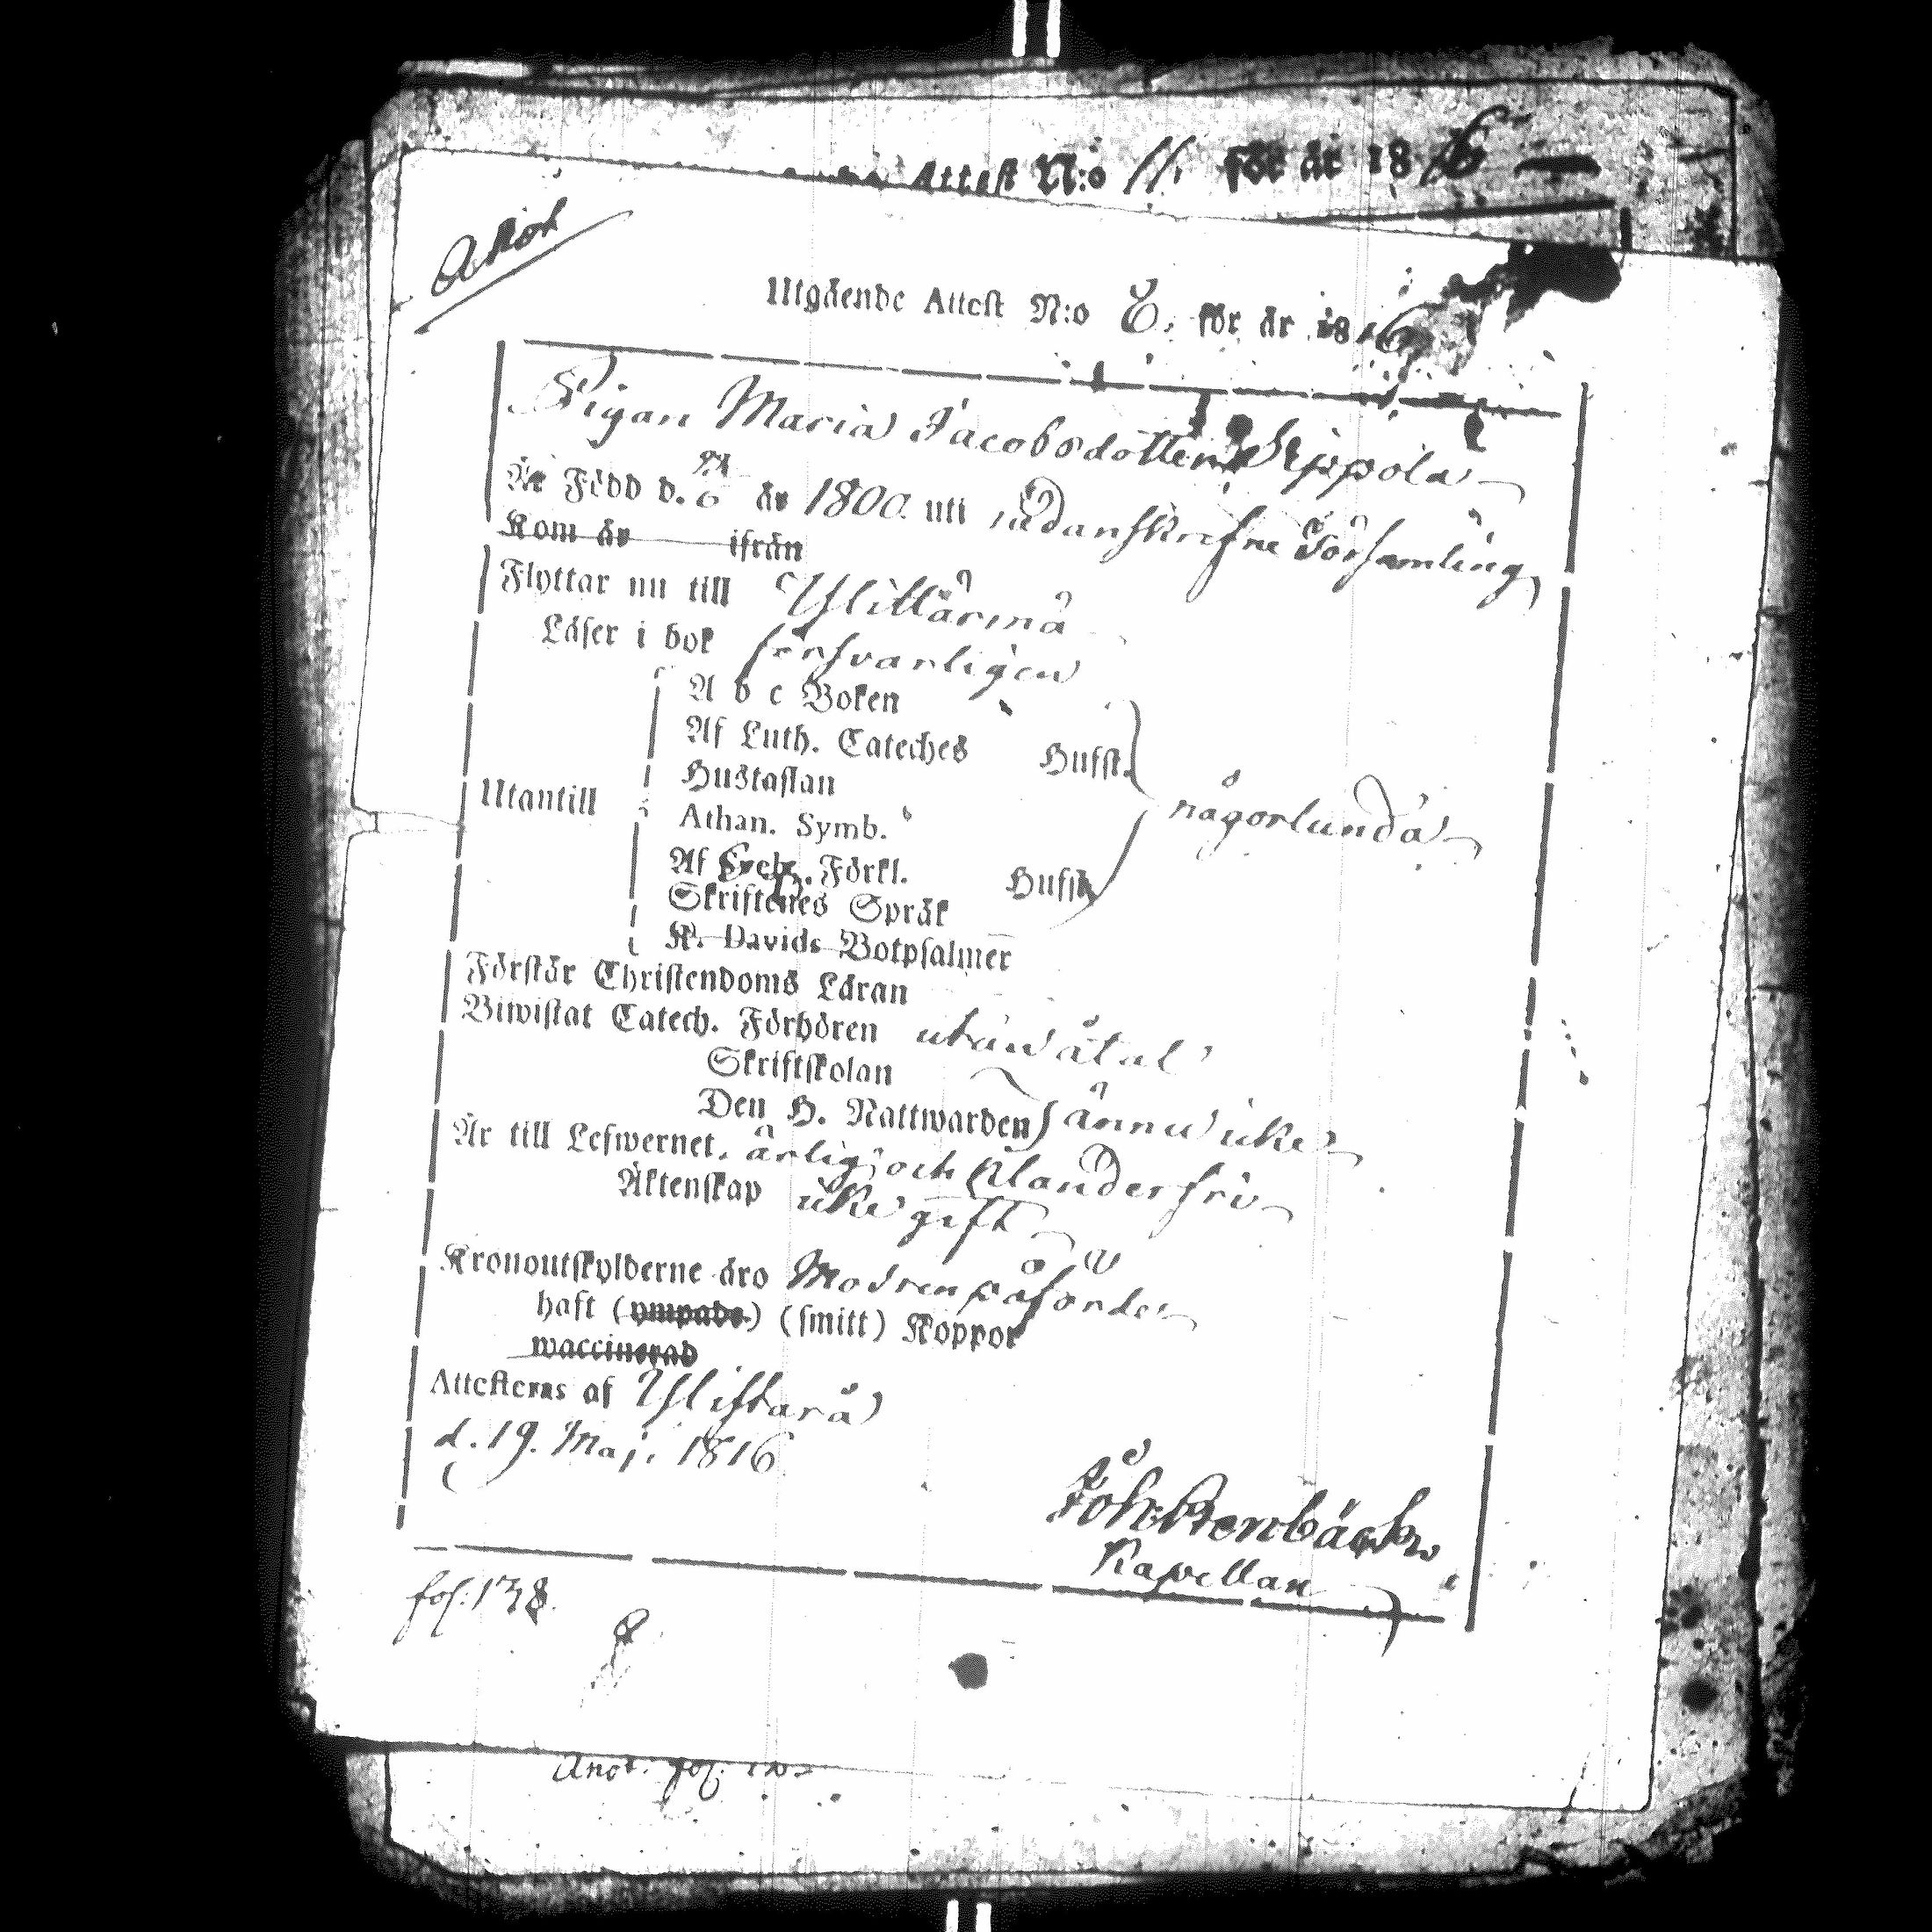 Attest N:o 11. för år 1816
Utgående Attest N:o 8. för år 1816
Pigan Maria Jacobsdotter Seppola
Är Född d. år 1800 uti nådanskrefne Församling
Kom år ifrån
Flyttar nu till Ylittärmä
Läser i bok försvarligen
A b c Boken
Af Luth. Cateches Hufst.
Hustaflan
Utantill
Athan. Symb.
någorlunda
Af Förkl. Hufst.
Skriftenes Språk
K. Davids Botpsalmer
Förstår Christendoms Läran
Biwistat Catech. Förhören utan åtal
Skriftskolan
Den H. Nattwarden ännu icke
Är till Lefwernet. ärlig och klanderfri
Äktenskap icke gift
Kronoutskylderne äro Modren påförde
haft (ympade) (smitt) Koppor
waccinerad
Attesteras af Ylistarå
d. 19. Maj. 1816
Joh. Stenbäck
Kapellan
fol. 138.
Anot. fol.